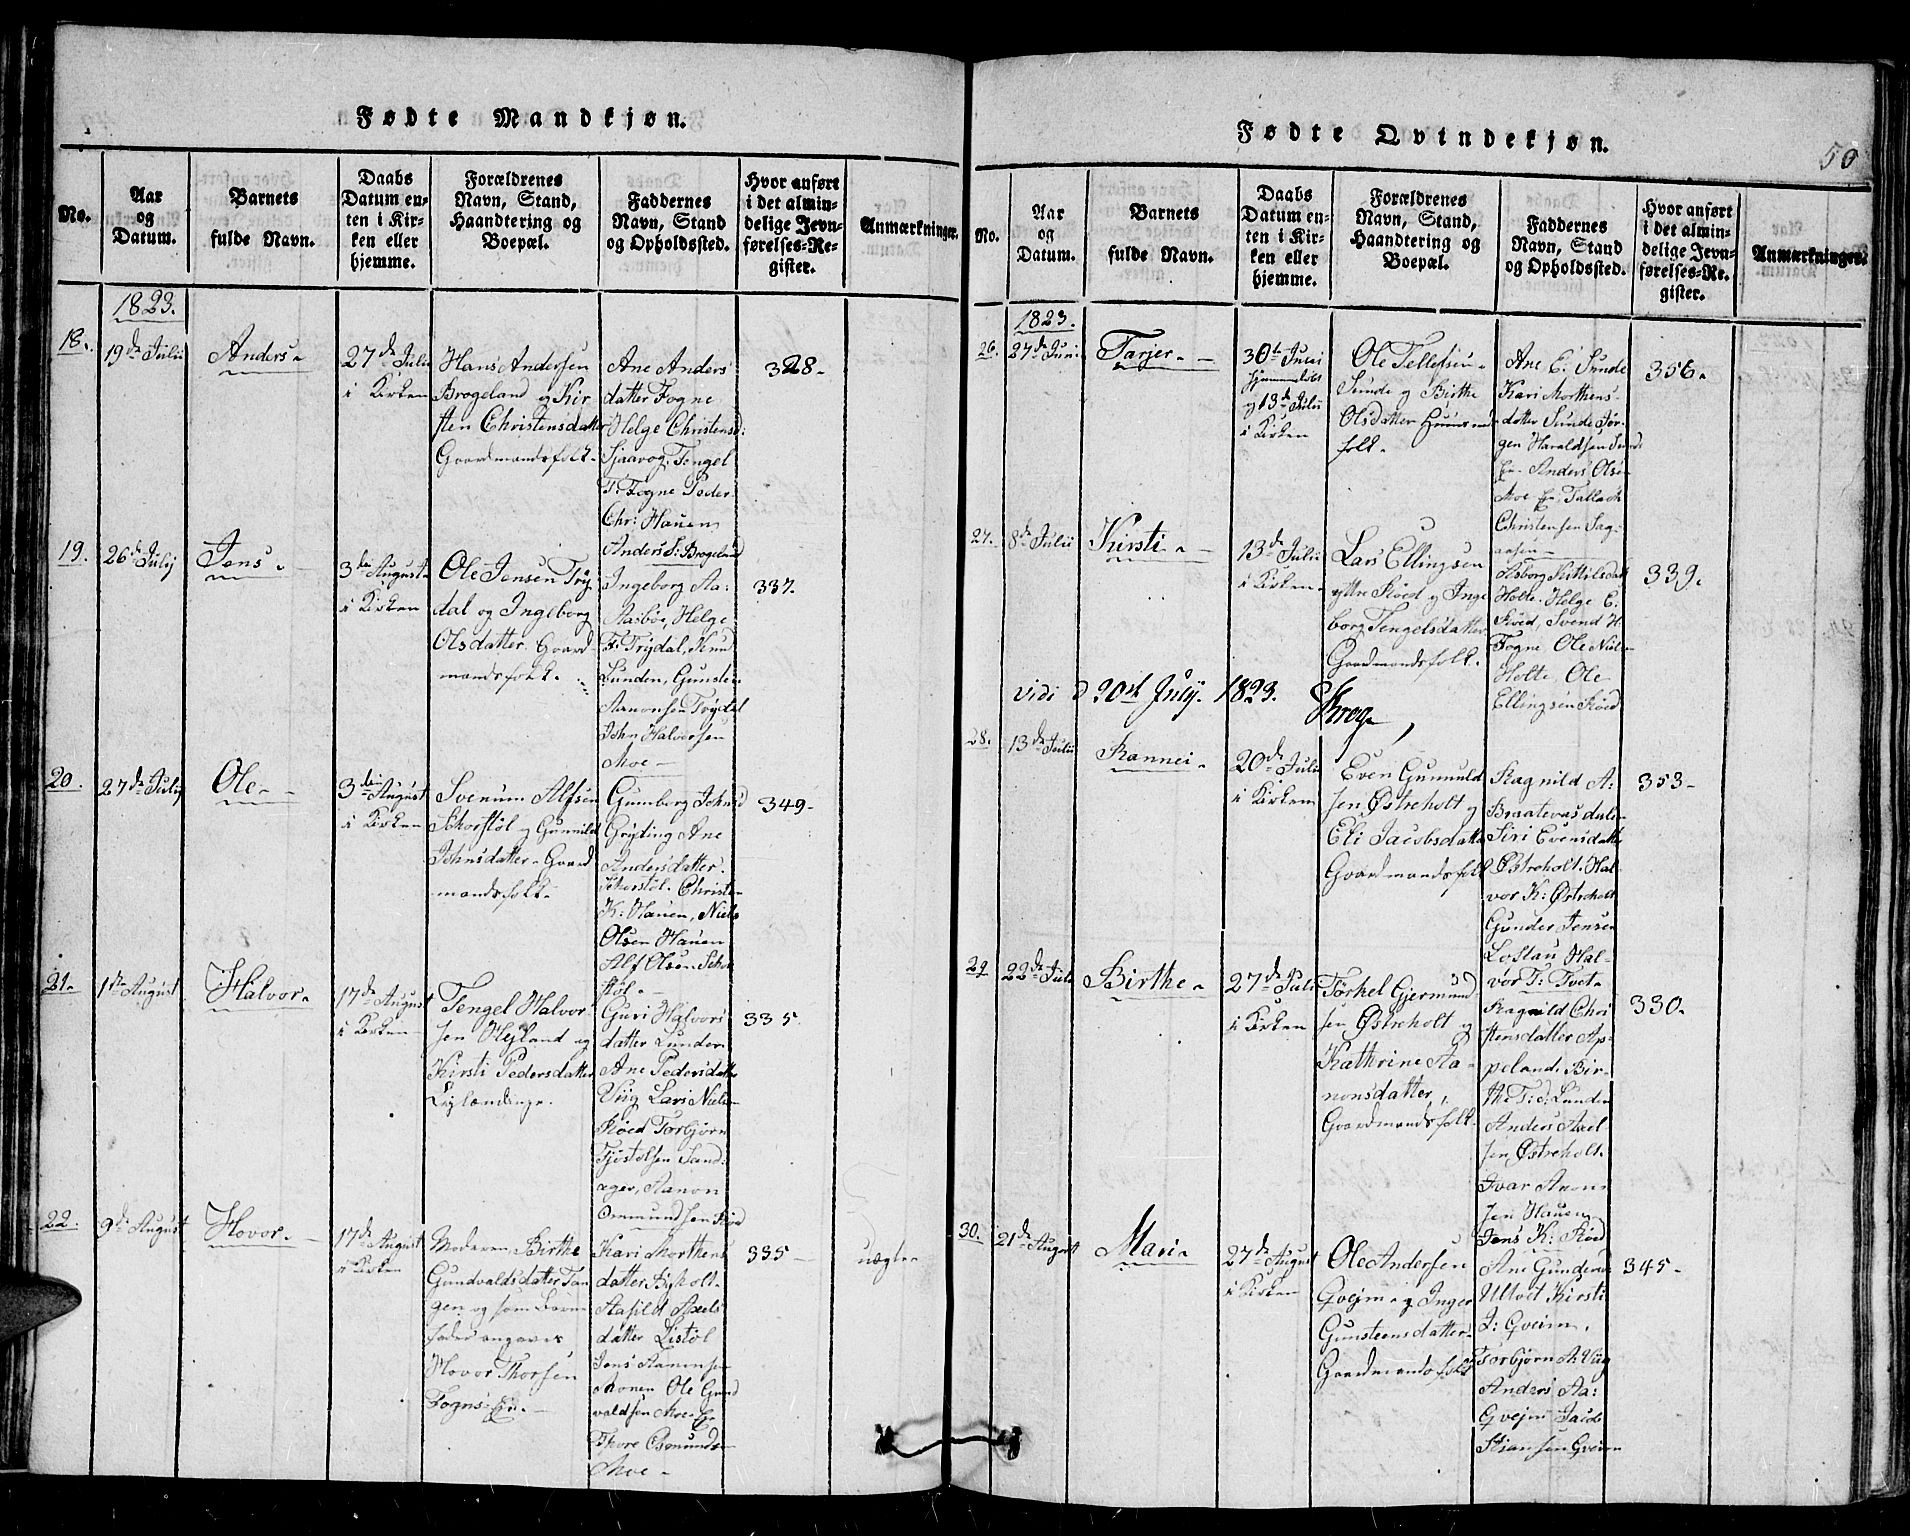 Fødte Mandkjøn.
No.
Aar
og
Datum.
Barnets
fulde Navn.
Daabs
Datum en-
ten i Kir-
ken eller
hjemme.
Forældrenes
Navn, Stand,
Haandtering og
Boepæl.
Faddernes
Navn, Stand
og Opholdssted.
Hvor anført
i det almin-
delige Jevn-
førelses-Re-
gister.
Anmærkninger.
1823.
18.
19de Julii
Anders
27de Julii
i Kirken
Hans Andersen
Brogeland og Kir
sten Christensdatter
Gaardmandsfolk
Ane Anders
datter Fogne
Helge Christensd:
Sjaavog, Tengel
T: Fogne Peder
Chr: Hauen
Anders S: Brogeland
328
19.
26de Julij
Jens
3die August
i Kirken
Ole Jensen Trÿ
dal og Ingeborg
Olsdatter Gaard
mandsfolk
Ingeborg Aa:
Aasbøe, Helge
F: Trÿdal, Knud
Lunden, Gunsten
Aanonsen Trÿdal
John Halvorsen
Moe
337.
20.
27de Julij
Ole
3die August
i Kirken
Svenum Alfsen
Skorstøl og Gunnild
Johnsdatter Gaard
mandsfolk
Gumborg Johnsd
Grÿting Ane
Andersdatter
Skorstøl. Christen
K: Hauen, Niels
Olsen Hauen
Alf Olsen Skor
støl
349
21.
1ste August
Halvor
17de August
i Kirken
Tengel Halvor
sen Hejland og
Kirsti Pedersdatter
Leylændinge.
Guri Halvors
datter Lunden
Ane Pedersdatter
Viig Lars Niels
Røed Torbjørn
Tjøstolsen Sand
ager, Aanon
Ommundsen Røed
335
22.
9de August
Hovor
17de August
i Kirken
Moderen Birthe
Gundvaldsdatter Tan
gen og som Barne
fader angaves
Hovor Thorsen
Fogne En.
Kari Morthens
datter Righolt
Aasild Axels
datter Listøl
Jens Aanonsen
Monen Ole Gund
valdsen Moe En
Thore Osmunds
Moe
335
uægte
Fødte Qvindekjøn.
50
No.
Aar
og
Datum.
Barnets
fulde Navn.
Daabs
Datum en-
ten i Kir-
ken eller
hjemme.
Forældrenes
Navn, Stand,
Haandtering og
Boepæl.
Faddernes
Navn, Stand
og Opholdssted.
Hvor anført
i det almin-
delige Jevn-
førelses-Re-
gister.
Anmærkninger.
1823.
26.
27de Juni
Tarjer
30te Juni
hjemmedøbt
og 13de Julii
i Kirken
Ole Tellefsen
Sunde og Birthe
Olsdatter Huusmands
folk.
Ane E: Sunde
Kari Morthens
datter Sunde Jør
gen Haraldsen Sunde
En Anders Olsen
Moe En, Tallach
Christensen Sag
aasen
356
27.
8de Julii
Kirsti
13de Julii
i Kirken
Lars Ellingsen
yttre Røed og Inge
borg Tengelsdatter
Gaardmandsfolk.
Asborg Kittilsdatt
Holte. Helge E:
Røed, Svend H
Fogne Ole Niels
Holte Ole
Ellingsen Røed
339.
vidi d 20st July. 1823. Krog
28.
13de Julii
Rannei
20de Julii
i Kirken
Even Gunnuld
sen Østreholt og
Eli Jacobsdatter
Gaardmandsfolk
Ragnild A:
Braatevasdalen
Siri Evensdatter
Østreholt. Hal
vor K: Østreholt
Gunder Jensen
Lostau Hal
vor T: Tvet
353
29
22de Julii
Birthe
27de Julii
i Kirken
Tørkel Gjermund
sen Østreholt og
Kathrine Aa
nonsdatter,
Gaardmandsfolk.
Ragnild Chri
stensdatter Ap
peland. Bir
the T: d: Lunden
Anders Axel
sen Østreholt
Ivar Anon
sen Hauen
Jens K: Røed
330.
30.
21de August
Mari
27de August
i Kirken
Ole Andersen
Gvejm og Inger
Gunsteensdatter
Gaardmandsfolk
Ane Gunders
Ultvet Kirsti
J: Gveim,
Torbjørn A: Viig
Anders Aa:
Gvejm Jacob
Stiansen Gveim
345